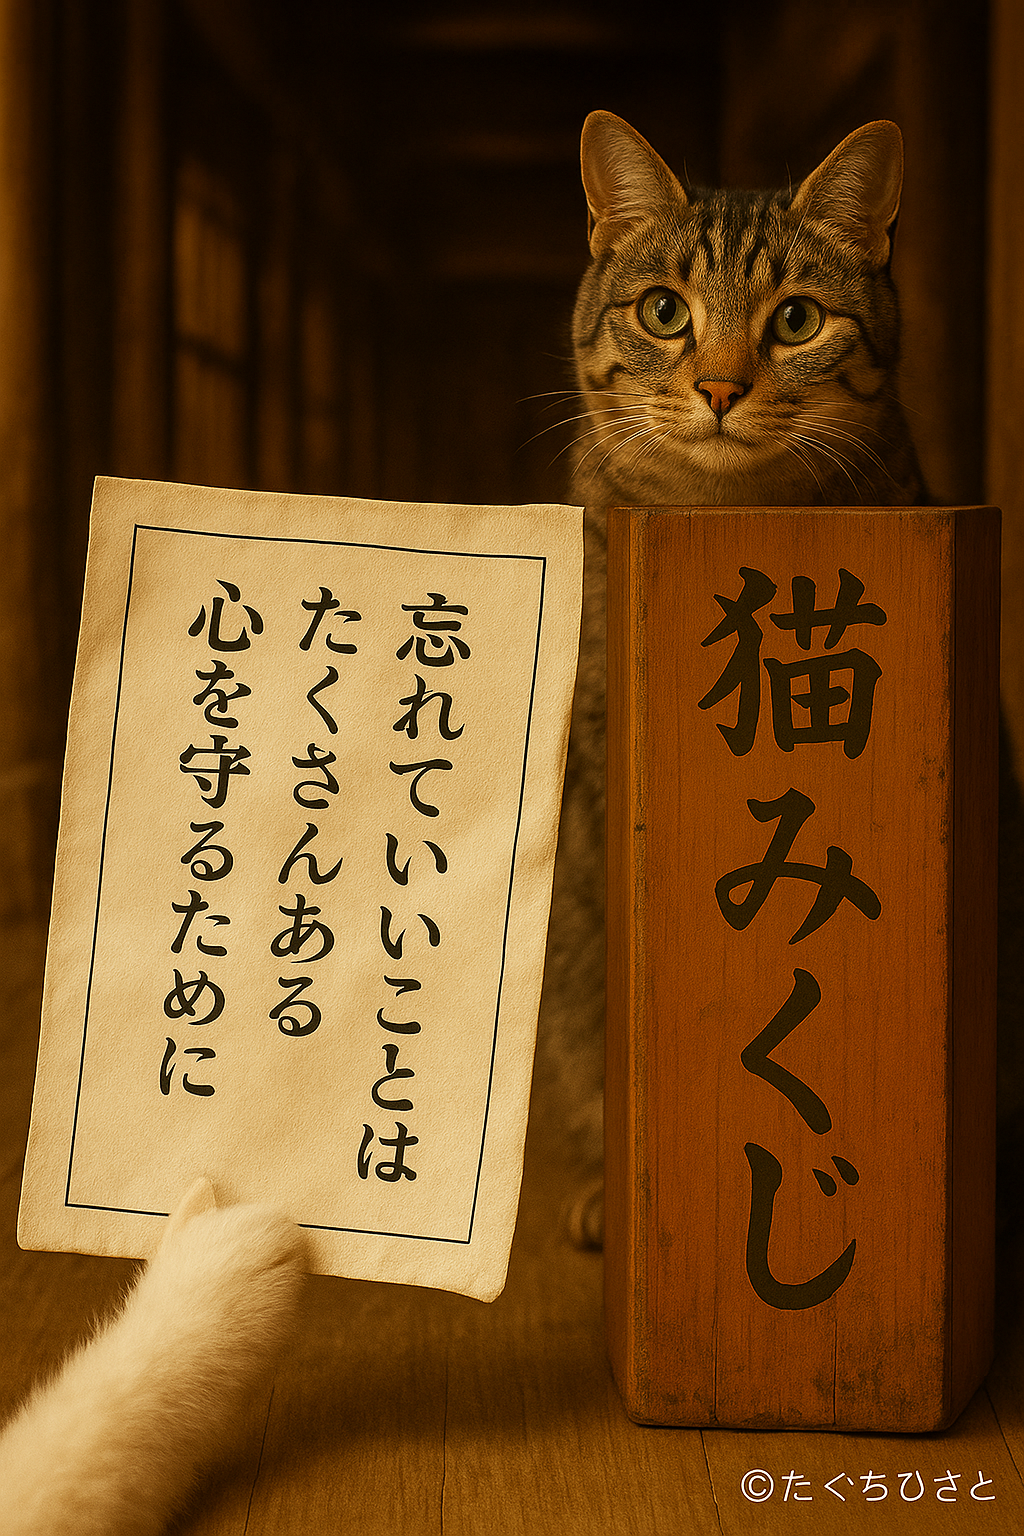 忘れていいことは
たくさんある
心を守るために
猫みくじ
©たぐちひさと